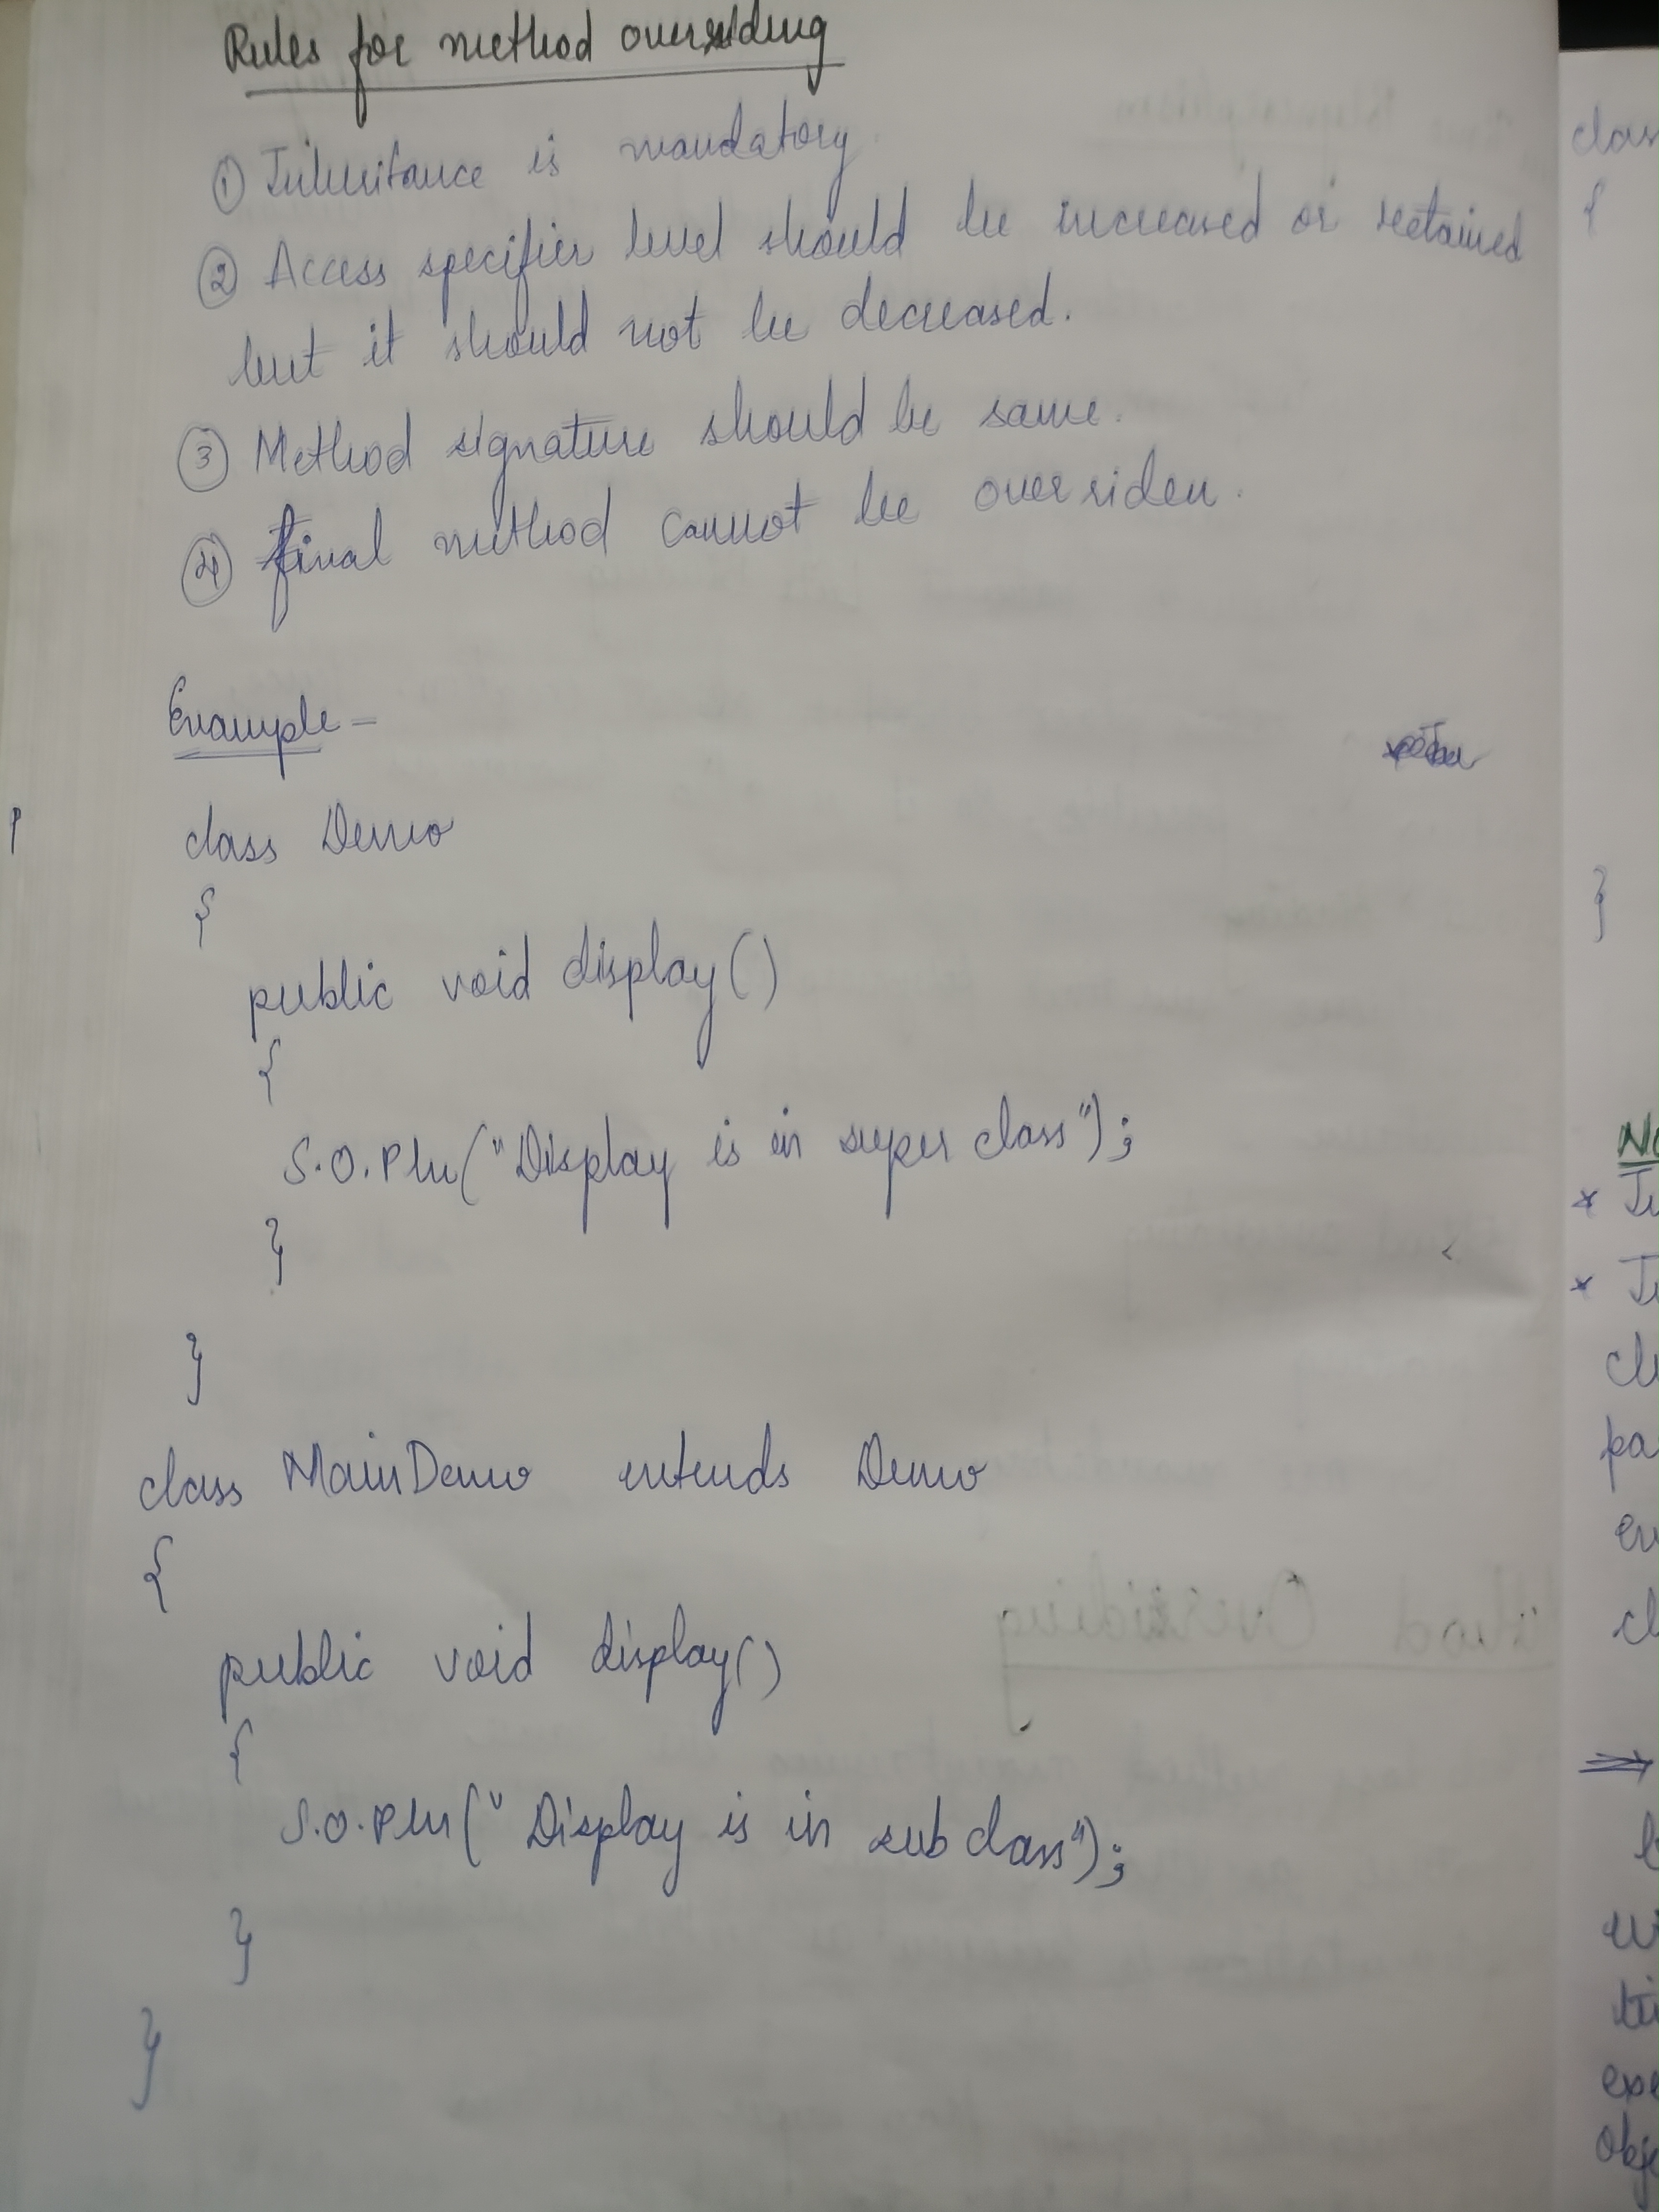 Rules for method overriding
① Inheritance is mandatory.
② Access specifier level should be increased or retained
but it should not be decreased.
③ Method signature should be same.
④ final method cannot be overriden.
Example -
class Demo
{
public void display()
{
S.O.Pln("Display is in super class");
}
}
class MainDemo extends Demo
{
public void display()
{
S.O.Pln("Display is in sub class");
}
}
clas
{
}
No